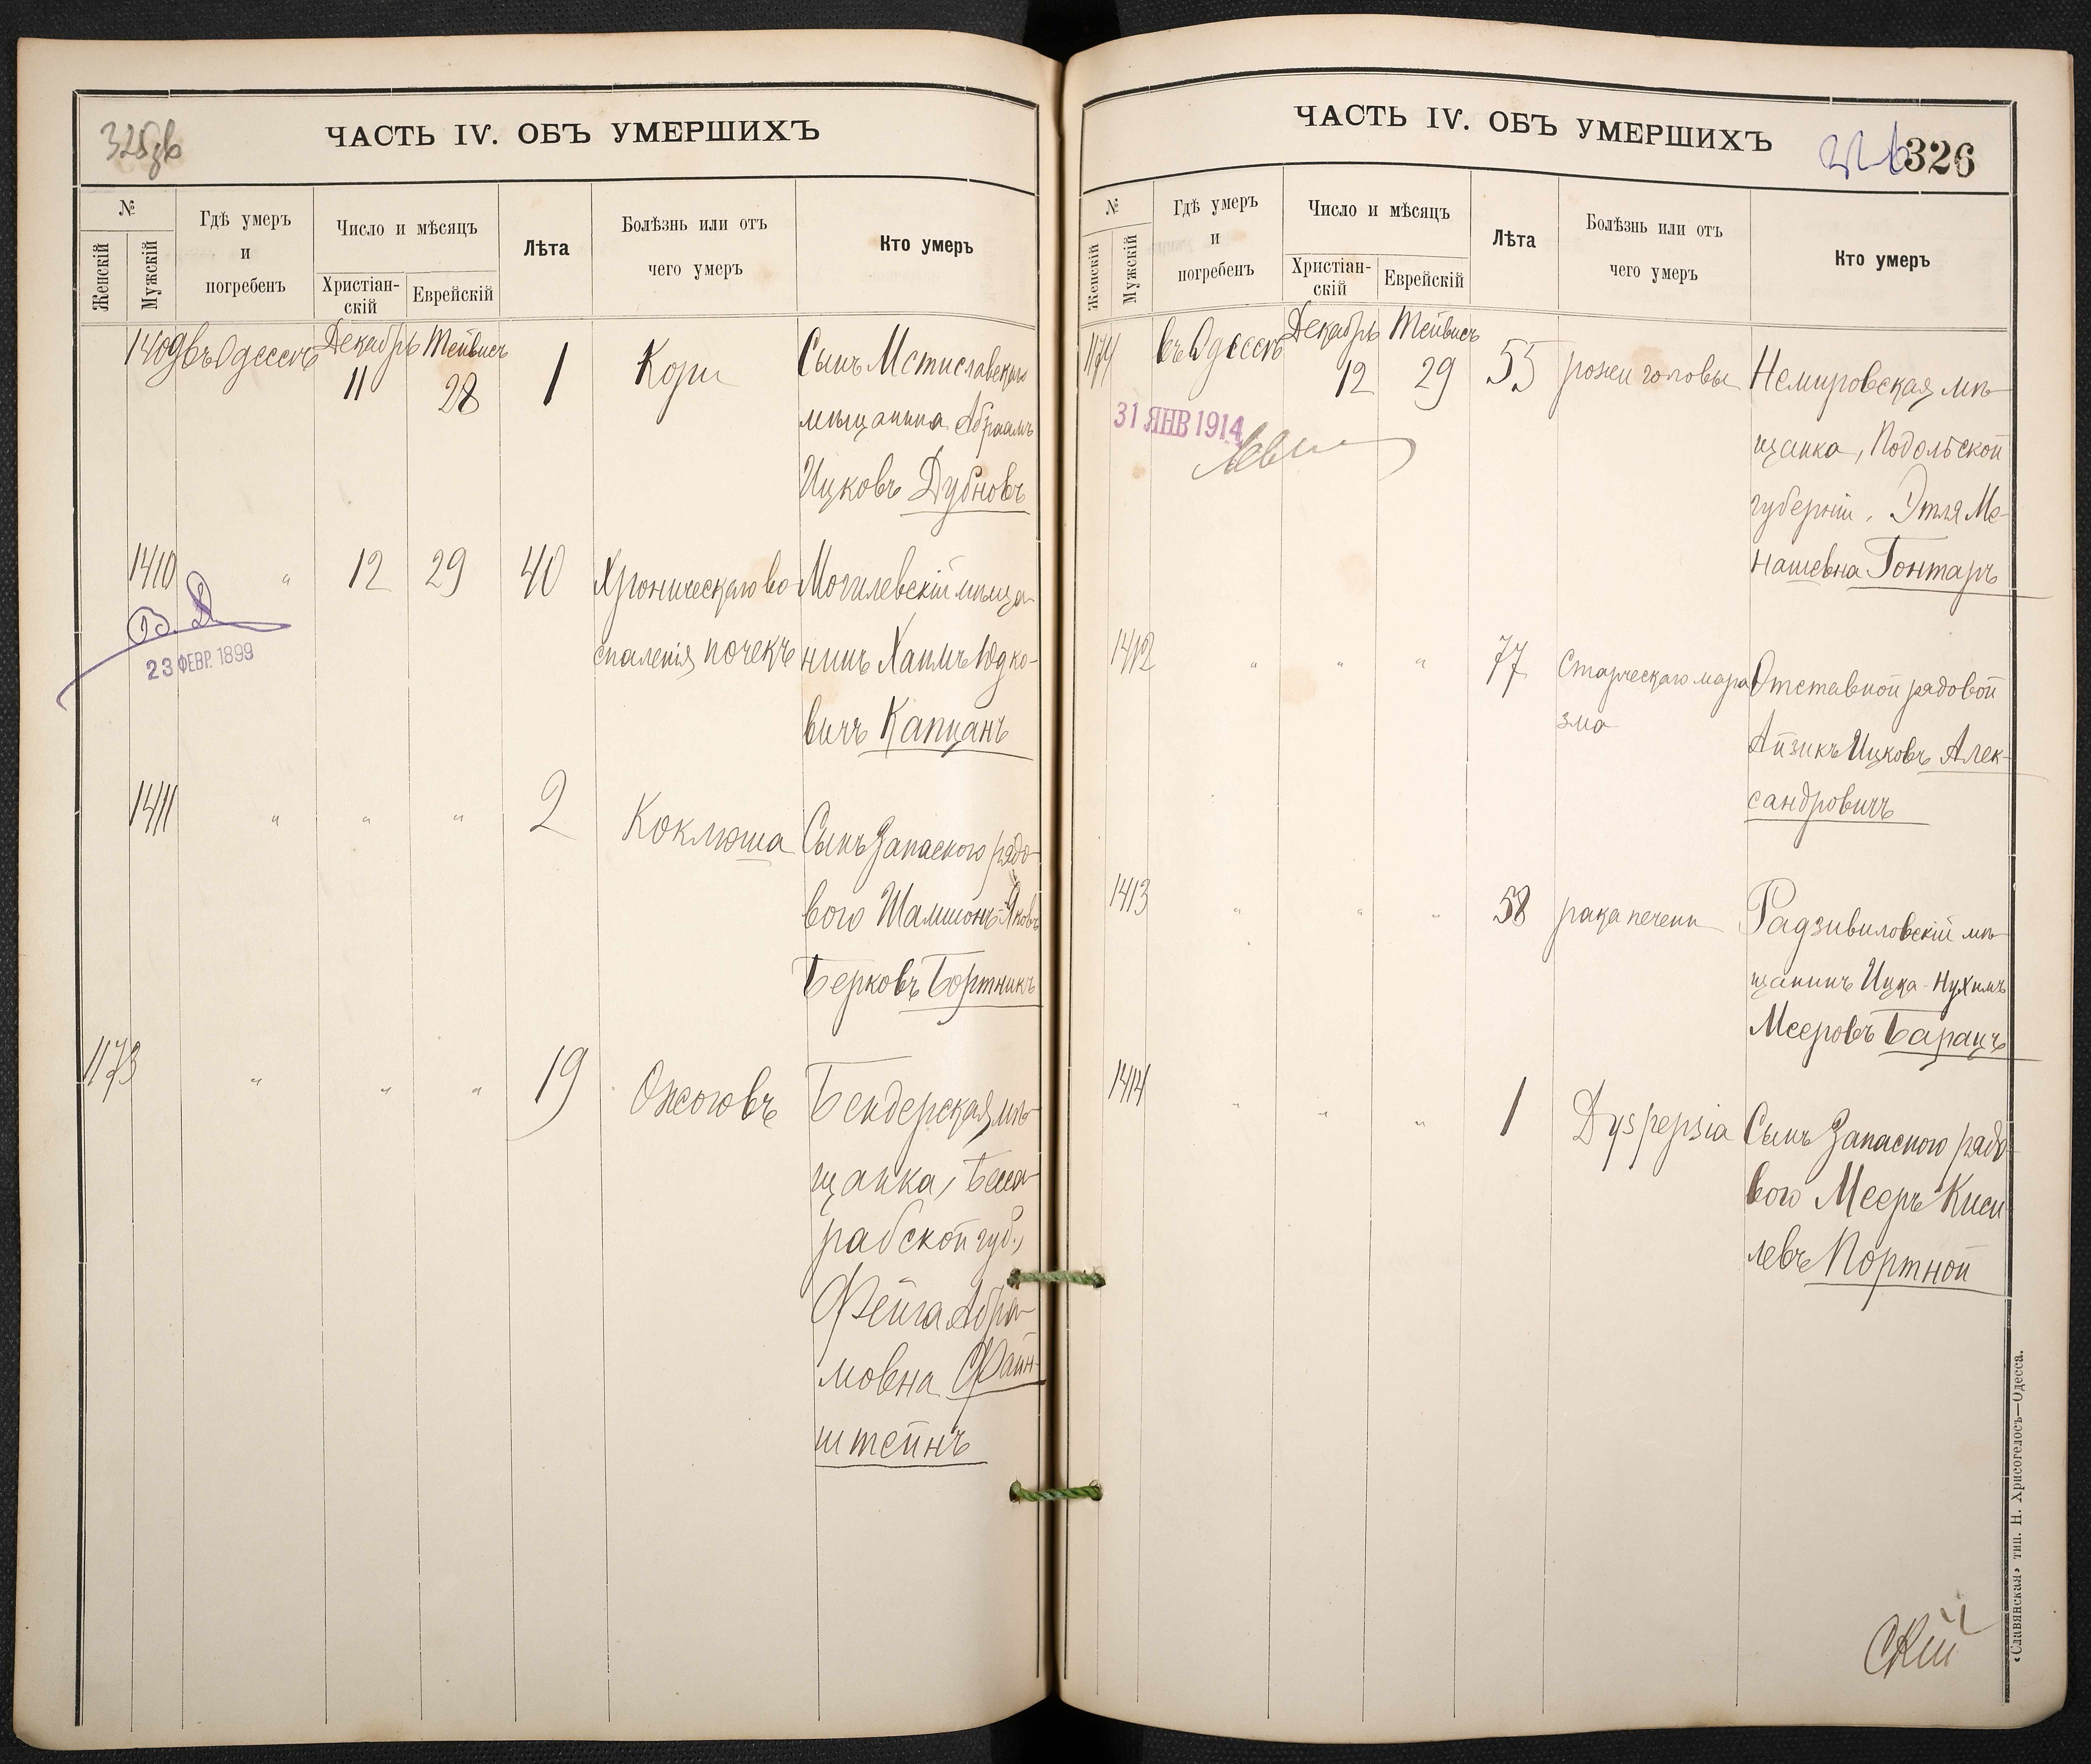 325 об
ЧАСТЬ IV. ОБЪ УМЕРШИХЪ
№
Женскій
Мужскій
Гдѣ умеръ
и
погребенъ
Число и мѣсяцъ
Христіан-
скій
Еврейскій
Лѣта
Болѣзнь или отъ
чего умеръ
Кто умеръ
1409 въ Одессѣ Декабрь 11 Тейвисъ 28 1 Кори Сынъ Мстиславскаго
мѣщанина Абраамъ
Ицковъ Дубновъ
1410 " 12 29 40 Хроническаго во Могилевскій мѣща-
спаленія почекъ нинъ Хаимъ Юдко-
вичъ Капцанъ
23 ФЕВР. 1899
1411 " " " 2 Коклюша Сынъ Запаснаго рядо-
вого Шамшонъ-Яковъ
Берковъ Бортникъ
1173 " " " 19 Ожоговъ Бендерская мѣ-
щанка, Бесса-
рабской губ.,
Фейга Абра-
мовна Файн-
штейнъ
ЧАСТЬ IV. ОБЪ УМЕРШИХЪ
326
№
Женскій
Мужскій
Гдѣ умеръ
и
погребенъ
Число и мѣсяцъ
Христіан-
скій
Еврейскій
Лѣта
Болѣзнь или отъ
чего умеръ
Кто умеръ
1174 въ Одессѣ Декабрь 12 Тейвисъ 29 55 рожи головы Немировская мѣ-
щанка, Подольской
губерніи, Этля Ме-
нашевна Гонтаръ
31 ЯНВ 1914
1412 " " " 77 Старческаго мара Отставной рядовой
зма
Айзикъ Ицковъ Алек-
сандровичъ
1413 " " " 58 рака печени Радзивиловскій мѣ-
щанинъ Ицка-Нухимъ
Мееровъ Баранъ
1414 " " " 1 Dyspepsia Сынъ Запасного рядо-
вого Мееръ Киси
левъ Портной
скій
«Славянская» тип. Н. Хрисогелосъ—Одесса.